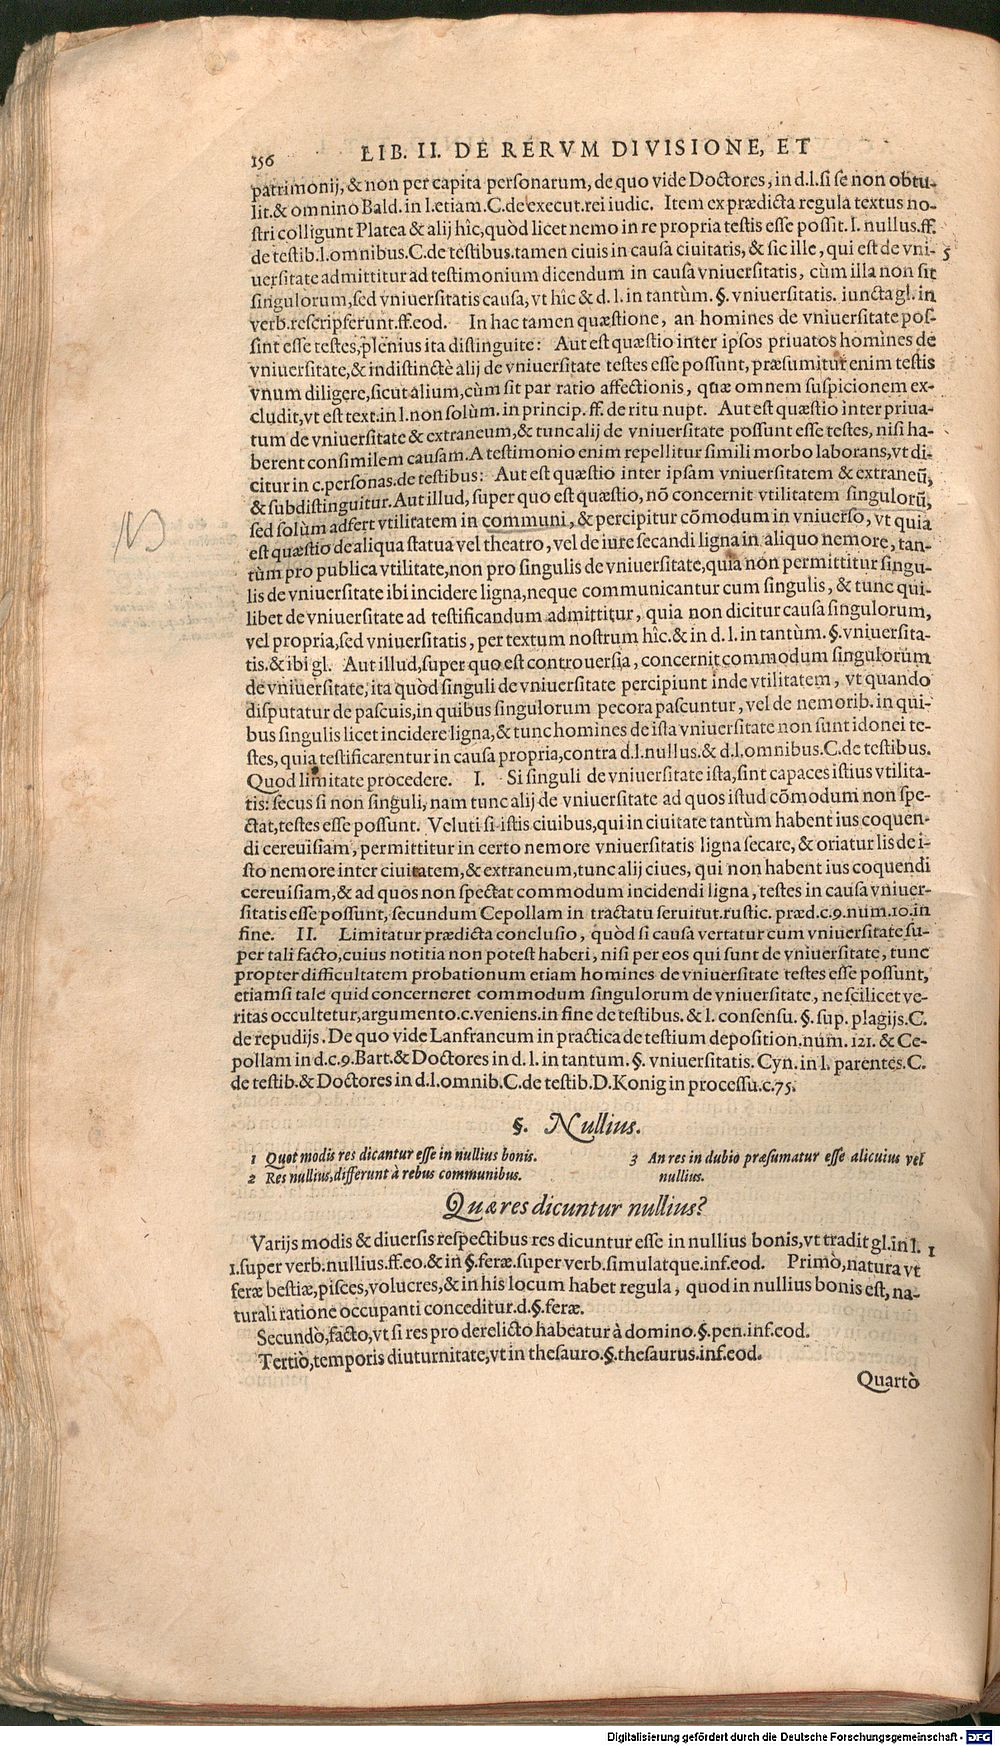 156 LIB. II. DE RERVM DIVISIONE, ET
patrimonij, & non per capita personarum, de quo vide Doctores, in d.l. si se non obtu-
lit. & omnino Bald. in l. etiam. C. de execut. rei iudic. Item ex prædicta regula textus no-
stri colligunt Platea & alij hîc, quòd licet nemo in re propria testis esse possit. l. nullus. ff.
de testib. l. omnibus. C. de testibus. tamen ciuis in causa ciuitatis, & sic ille, qui est de vni- 5
uersitate admittitur ad testimonium dicendum in causa vniuersitatis, cùm illa non sit
singulorum, sed vniuersitatis causa, vt hîc & d. l. in tantùm. §. vniuersitatis. iuncta gl. in
verb. rescripserunt. ff. eod. In hac tamen quæstione, an homines de vniuersitate pos-
sint esse testes, plenius ita distinguite: Aut est quæstio inter ipsos priuatos homines de
vniuersitate, & indistinctè alij de vniuersitate testes esse possunt, præsumitur enim testis
vnum diligere, sicut alium, cùm sit par ratio affectionis, quæ omnem suspicionem ex-
cludit, vt est text. in l. non solùm. in princip. ff. de ritu nupt. Aut est quæstio inter priua-
tum de vniuersitate & extraneum, & tunc alij de vniuersitate possunt esse testes, nisi ha-
berent consimilem causam. A testimonio enim repellitur simili morbo laborans, vt di-
citur in c. personas. de testibus: Aut est quæstio inter ipsam vniuersitatem & extraneũ,
& subdistinguitur. Aut illud, super quo est quæstio, nõ concernit vtilitatem singulorũ,
sed solùm adfert vtilitatem in communi, & percipitur cõmodum in vniuerso, vt quia
est quæstio de aliqua statua vel theatro, vel de iure secandi ligna in aliquo nemore, tan-
tùm pro publica vtilitate, non pro singulis de vniuersitate, quia non permittitur singu-
lis de vniuersitate ibi incidere ligna, neque communicantur cum singulis, & tunc qui-
libet de vniuersitate ad testificandum admittitur, quia non dicitur causa singulorum,
vel propria, sed vniuersitatis, per textum nostrum hîc. & in d. l. in tantùm. §. vniuersita-
tis. & ibi gl. Aut illud, super quo est controuersia, concernit commodum singulorum
de vniuersitate, ita quòd singuli de vniuersitate percipiunt inde vtilitatem, vt quando
disputatur de pascuis, in quibus singulorum pecora pascuntur, vel de nemorib. in qui-
bus singulis licet incidere ligna, & tunc homines de ista vniuersitate non sunt idonei te-
stes, quia testificarentur in causa propria, contra d. l. nullus. & d. l. omnibus. C. de testibus.
Quod limitate procedere. I. Si singuli de vniuersitate ista, sint capaces istius vtilita-
tis: secus si non singuli, nam tunc alij de vniuersitate ad quos istud cõmodum non spe-
ctat, testes esse possunt. Veluti si istis ciuibus, qui in ciuitate tantùm habent ius coquen-
di cereuisiam, permittitur in certo nemore vniuersitatis ligna secare, & oriatur lis de i-
sto nemore inter ciuitatem, & extraneum, tunc alij ciues, qui non habent ius coquendi
cereuisiam, & ad quos non spectat commodum incidendi ligna, testes in causa vniuer-
sitatis esse possunt, secundum Cepollam in tractatu seruitut. rustic. præd. c. 9. num. 10. in
fine. II. Limitatur prædicta conclusio, quòd si causa vertatur cum vniuersitate su-
per tali facto, cuius notitia non potest haberi, nisi per eos qui sunt de vniuersitate, tunc
propter difficultatem probationum etiam homines de vniuersitate testes esse possunt,
etiamsi tale quid concerneret commodum singulorum de vniuersitate, ne scilicet ve-
ritas occultetur, argumento. c. veniens. in fine de testibus. & l. consensu. §. sup. plagijs. C.
de repudijs. De quo vide Lanfrancum in practica de testium deposition. num. 121. & Ce-
pollam in d. c. 9. Bart. & Doctores in d. l. in tantum. §. vniuersitatis. Cyn. in l. parentes. C.
de testib. & Doctores in d. l. omnib. C. de testib. D. Konig in processu. c. 75.
§. Nullius.
1 Quot modis res dicantur esse in nullius bonis.
2 Res nullius, differunt à rebus communibus.
3 An res in dubio præsumatur esse alicuius vel
nullius.
Quæ res dicuntur nullius?
Varijs modis & diuersis respectibus res dicuntur esse in nullius bonis, vt tradit gl. in l. 1
1. super verb. nullius. ff. eo. & in §. feræ. super verb. simulatque. inf. eod. Primò, natura vt
feræ bestiæ, pisces, volucres, & in his locum habet regula, quod in nullius bonis est, na-
turali ratione occupanti conceditur. d. §. feræ.
Secundò, facto, vt si res pro derelicto habeatur à domino. §. pen. inf. eod.
Tertiò, temporis diuturnitate, vt in thesauro. §. thesaurus. inf. eod.
Quartò
Digitalisierung gefördert durch die Deutsche Forschungsgemeinschaft - DFG